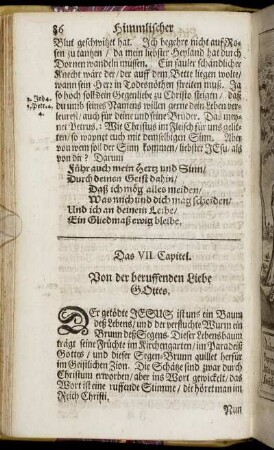 86 Himmlischer
Blut geschwitzt hat. Ich begehre nicht auf Ro-
sen zu tantzen / da mein liebster Heyland hat durch
Dornen wandeln müssen. Ein fauler schändlicher
Knecht wäre der / der auff dem Bette liegen wolte /
wann sein Herr in Todesnöthen streiten muß. Ja
so hoch soll dein Gegenliebe zu Christo steigen / daß
du umb seines Namens willen gerne dein Leben ver-
leurest / auch für deine und seine Brüder. Das mey-
net Petrus: Wie Christus im Fleisch für uns gelit-
ten / so wapnet euch mit demselbigen Sinn. Aber
von wem soll der Sinn kommen / liebster JEsu als
von dir? Darum
Führ auch mein Hertz und Sinn /
Durch deinen Geist dahin /
Daß ich mög alles meiden /
Was mich und dich mag scheiden /
Und ich an deinem Leibe /
Ein Gliedmaß ewig bleibe.
Das VII. Capitel.
Von der beruffenden Liebe
GOttes.
DEr getödte JESUS ist uns ein Baum
deß Lebens / und der verfluchte Wurm ein
Brunn deß Segens. Dieser Lebensbaum
trägt seine Früchte im Kirchengarten / im Paradeiß
Gottes / und dieser Segen-Brunn quillet herfür
im Geistlichen Zion. Die Schätze sind zwar durch
Christum erworben / aber ins Wort gewickelt / das
Wort ist eine ruffende Stimme / die höret man im
Reich Christi,
Nun